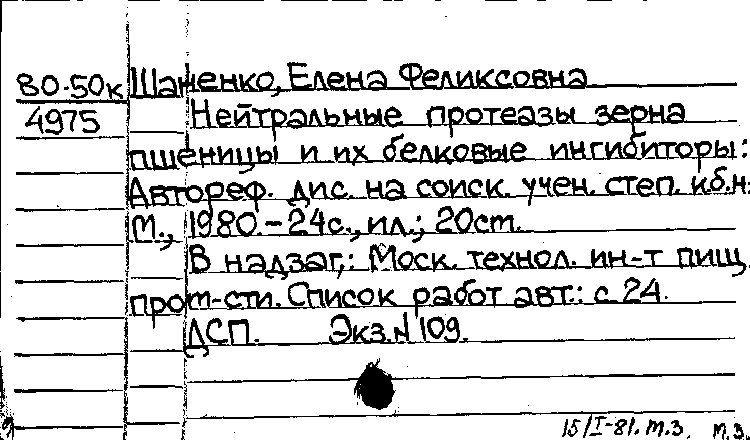 80-50к Шаненко, Елена Феликсовна
4975 Нейтральные протеазы зерна
пшеницы и их белковые ингибиторы:
Автореф. дис. на соиск. учен. степ. к.б.н.
М., 1980.-24с., ил.; 20ст.
В надзаг.: Моск. технол. ин-т пищ.
пром-сти. Список работ авт.: с.24.
ДСП. Экз.N109.
15/I-81. м.з. м.з.